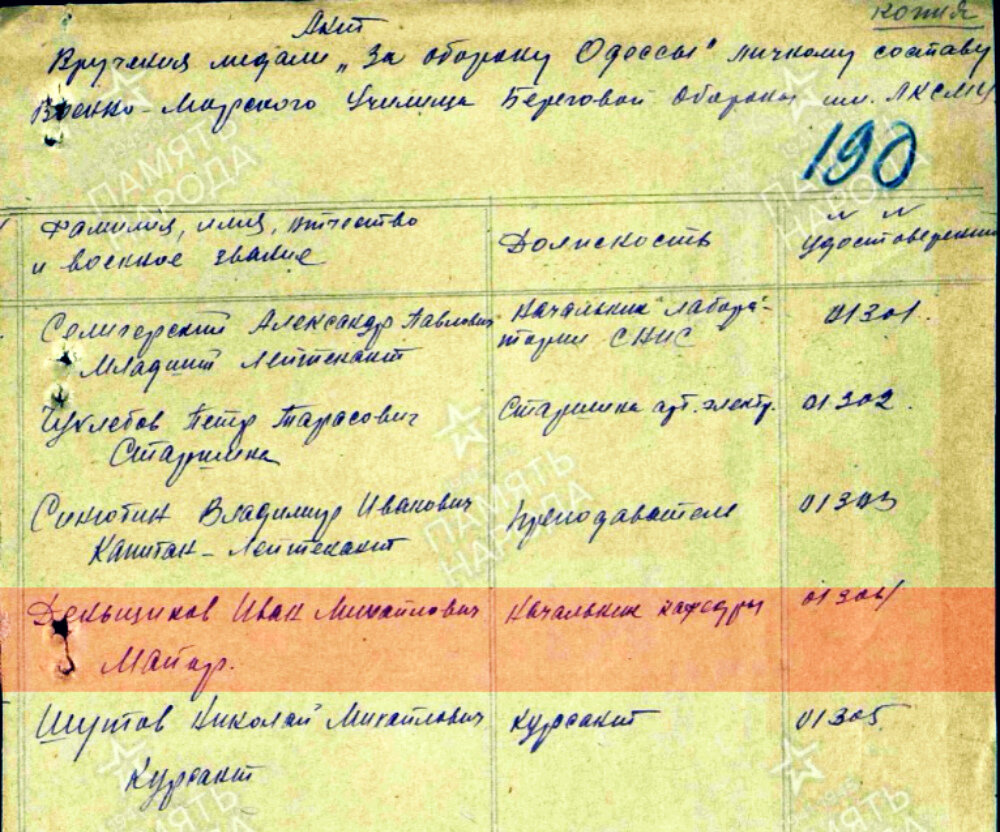 копия
Акт
Вручения медали „За оборону Одессы" личному составу
Военно-Морского Училища Береговой Обороны им. ЛКСМУ
190
Фамилия, имя, отчество
и военное звание
Должность
№ №
удостоверения
Селигерский Александр Павлович
Младший Лейтенант
Начальник лабора-
тории СНиС
01301.
Петр Тарасович
Старшина
Старшина арт. электр.
01302
Синютин Владимир Иванович
Капитан-Лейтенант
преподаватель
01303
Деньщиков Иван Михайлович
Майор.
Начальник кафедры
01304
Шутов Николай Михайлович
Курсант
курсант
01305
ПАМЯТЬ
НАРОДА